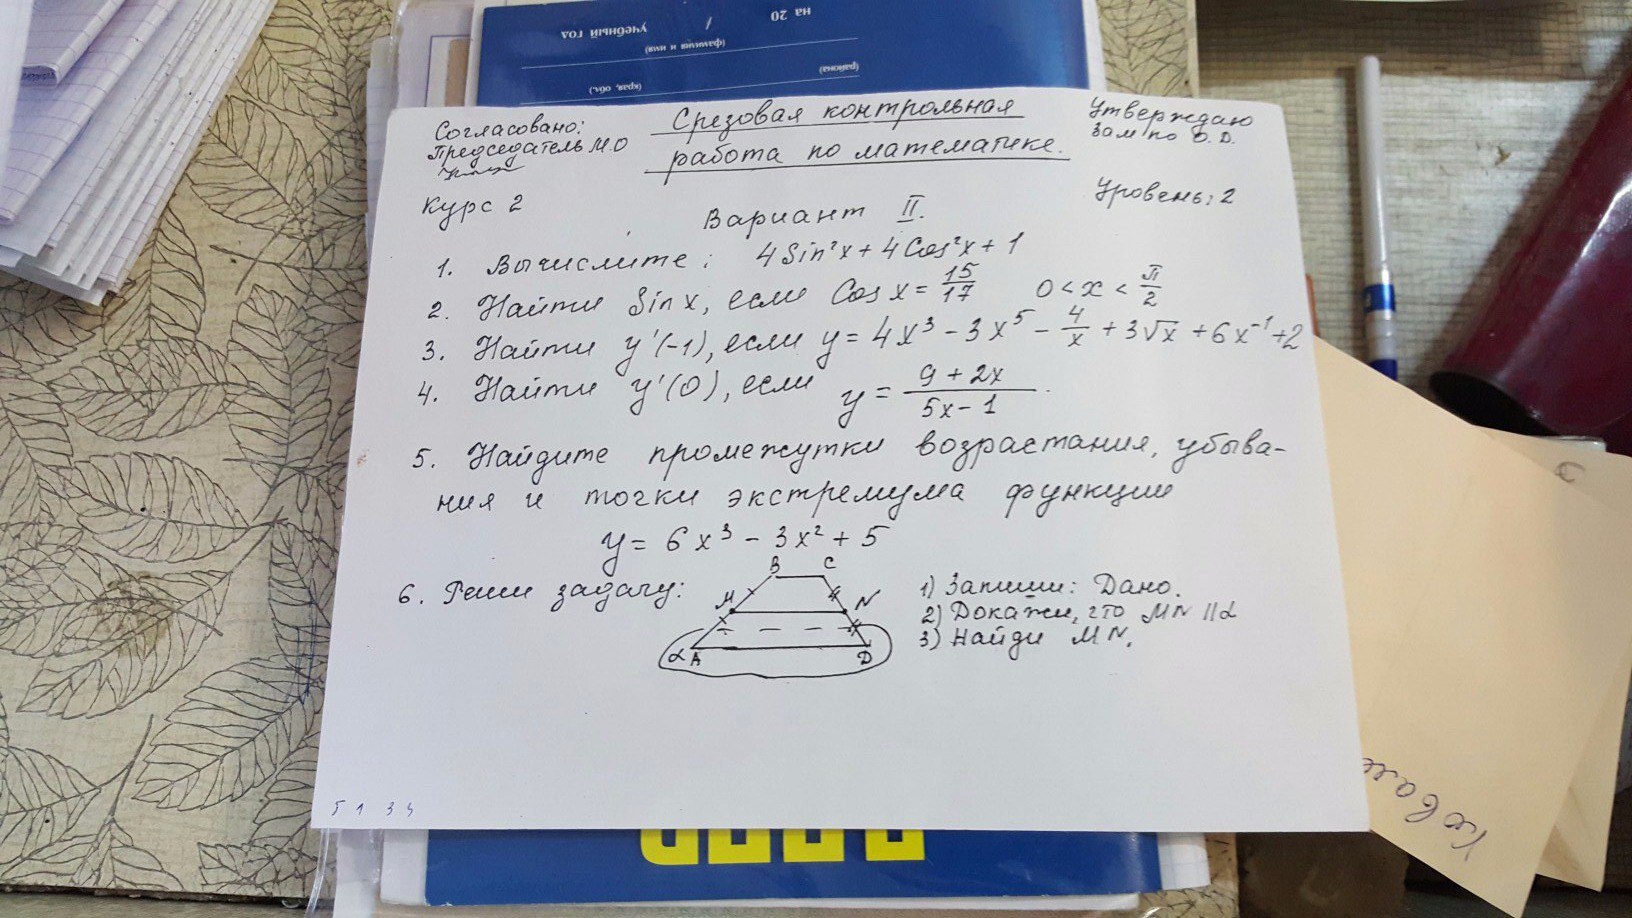 на 20 / учебный год
(фамилия и имя)
(района)
(края, обл.)
Согласовано:
Председатель МО
Срезовая контрольная
работа по математике.
Утверждаю
Зам по О.Д.
Курс 2
Вариант II.
Уровень: 2
1. Вычислите: 4 Sin²x + 4 Cos²x + 1
2. Найти Sin x, если Cos x = 15/17 0 < x < π/2
3. Найти y'(-1), если y = 4x³ - 3x⁵ - 4/x + 3√x + 6x⁻¹ + 2
4. Найти y'(0), если y = (9 + 2x)/(5x - 1).
5. Найдите промежутки возрастания, убыва-
ния и точки экстремума функции
y = 6x³ - 3x² + 5
6. Реши задачу:
B C
M N
α A D
1) Запиши: Дано.
2) Докажи, что MN || α
3) Найди MN.
5 1 3 4